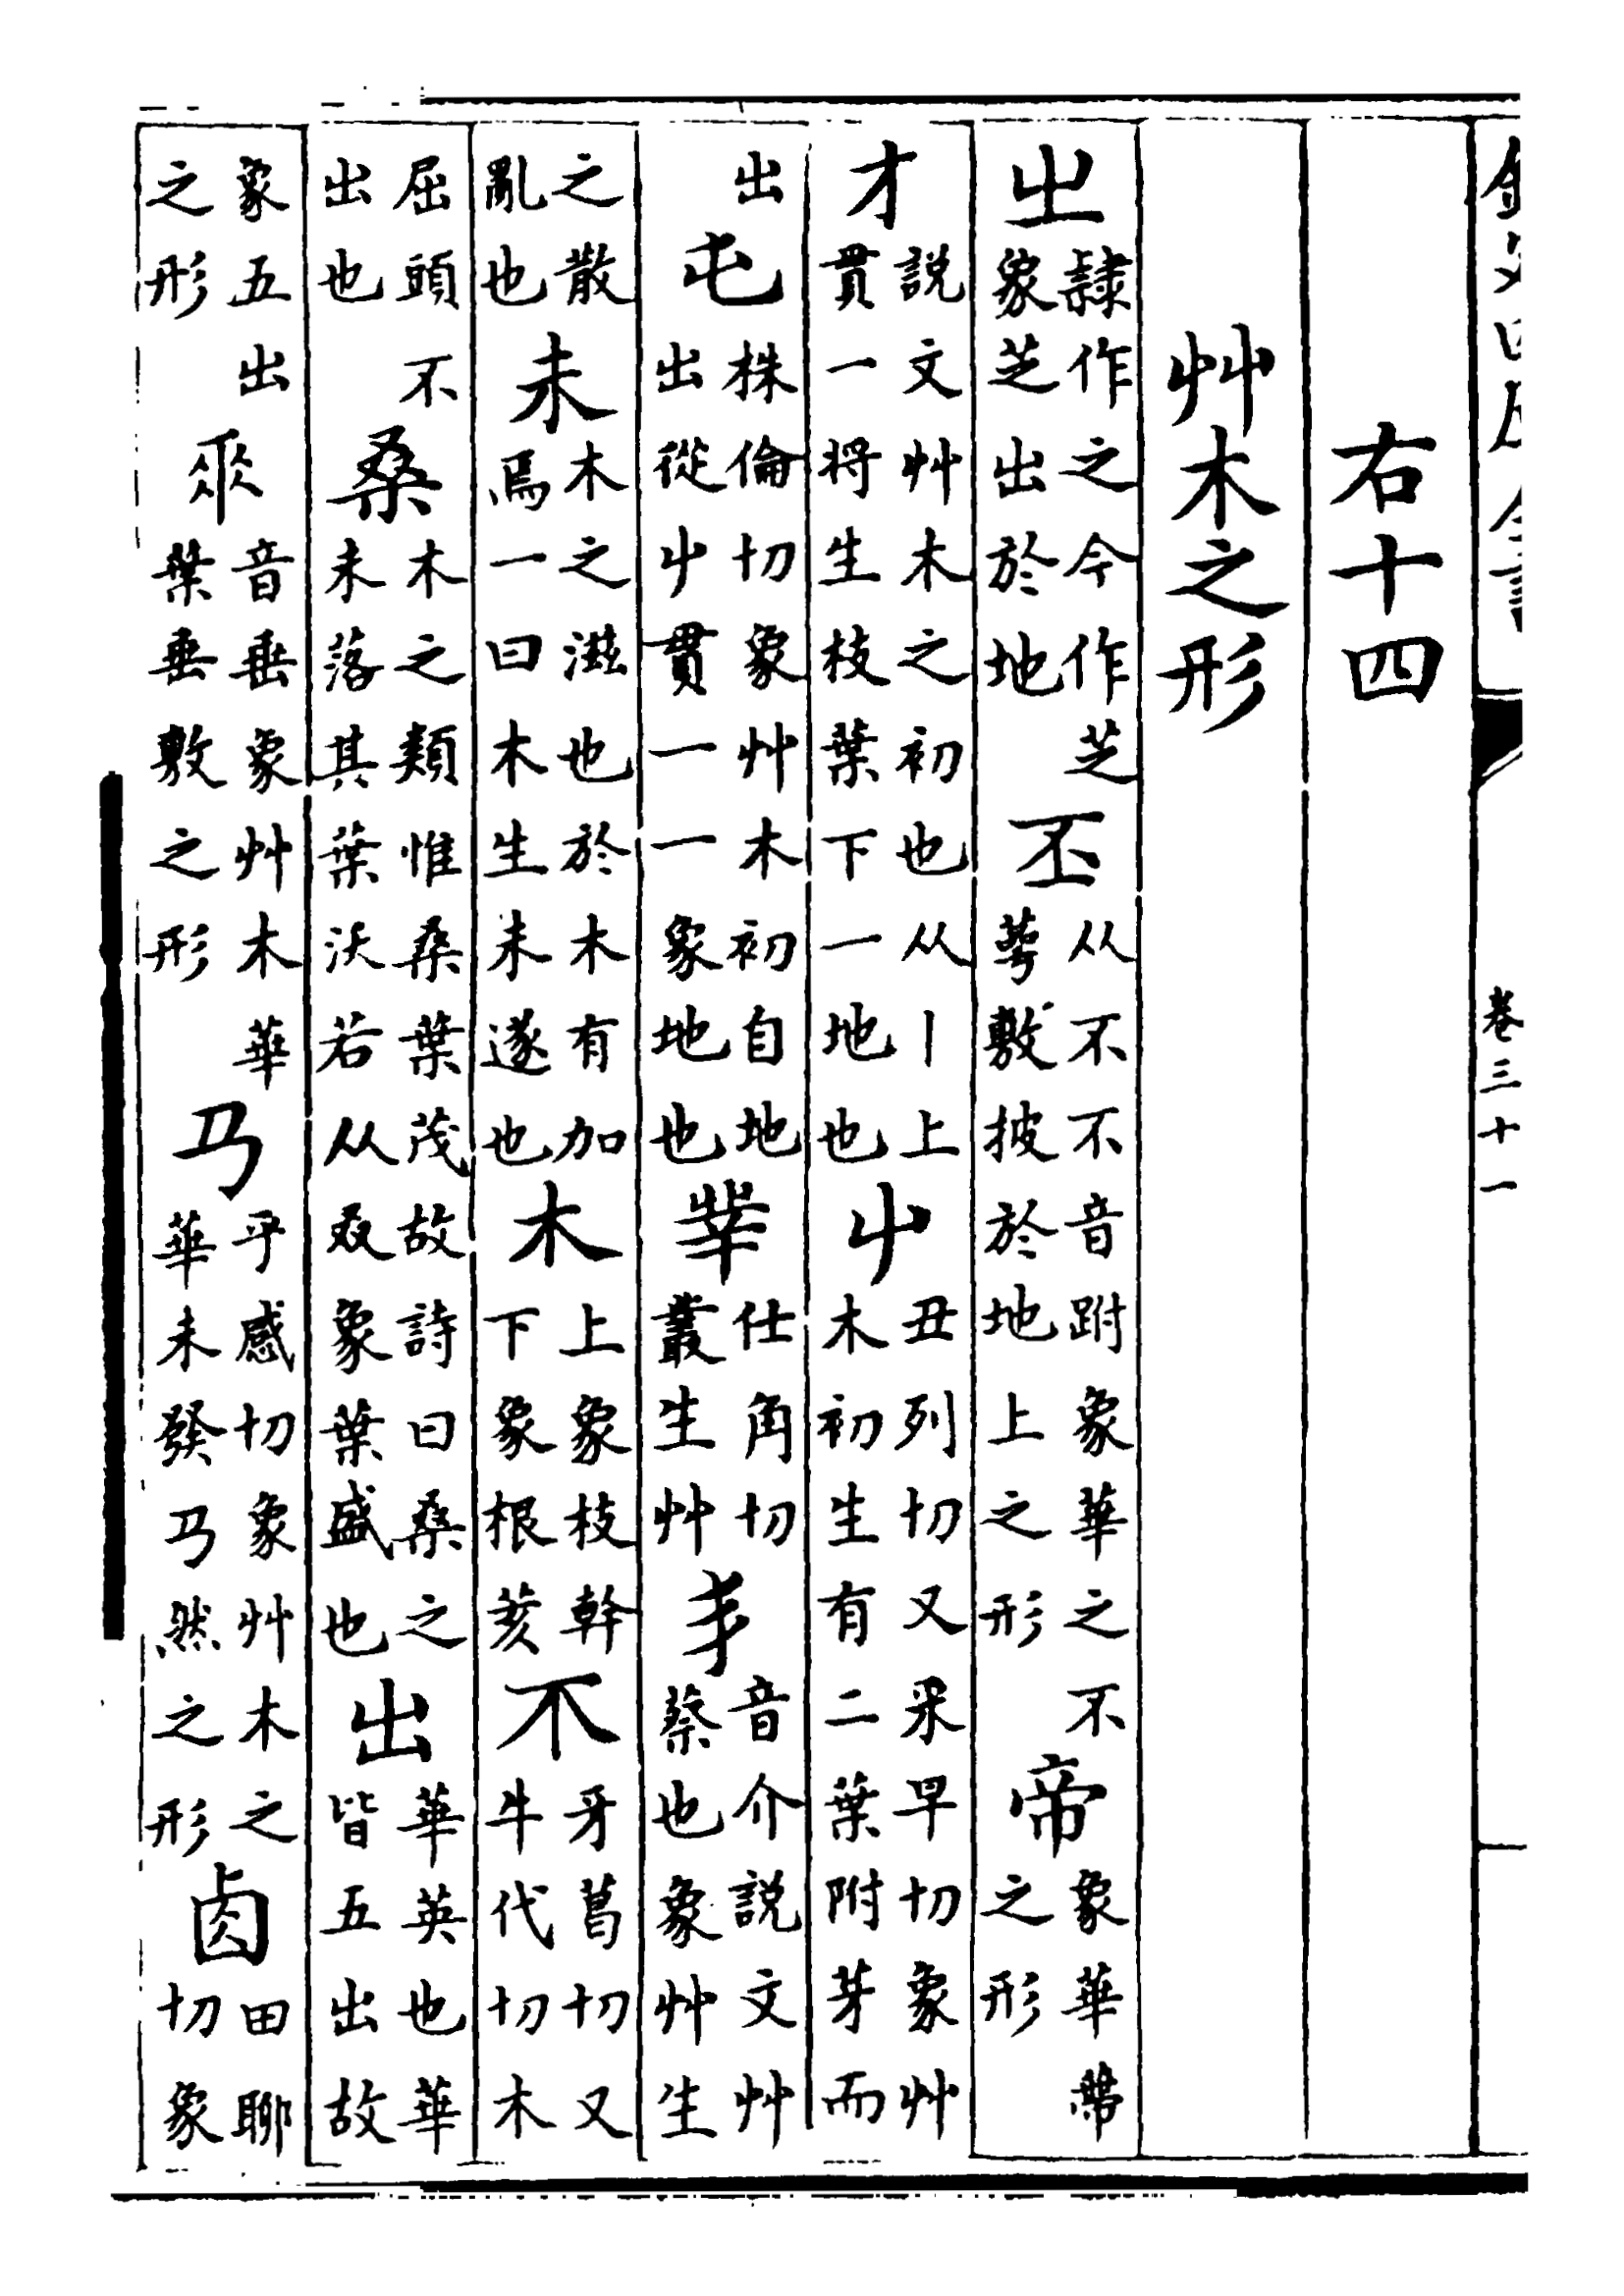 欽定四庫全書
卷三十一
右十四
艸木之形
㞢隷作之今作芝象芝出於地丕从不不音跗象華之不蕚敷披於地上之形帝象華蔕之形
才說文艸木之初也从丨上貫一將生枝葉下一地也屮丑列切又采早切象艸木初生有二葉附芽而
出屯株倫切象艸木初自地出從屮貫一一象地也丵仕角切叢生艸丯音介說文艸蔡也象艸生
之散亂也未木之滋也於木有加焉一曰木生未遂也木上象枝幹下象根荄不牙葛切又牛代切木
屈頭不出也桑木之類惟桑葉茂故詩曰桑之未落其葉沃若从叒象葉盛也出華英也華皆五出故
象五出之形𠂹音垂象艸木華葉垂敷之形㔾乎感切象艸木之華未發㔾然之形卤田聊切象